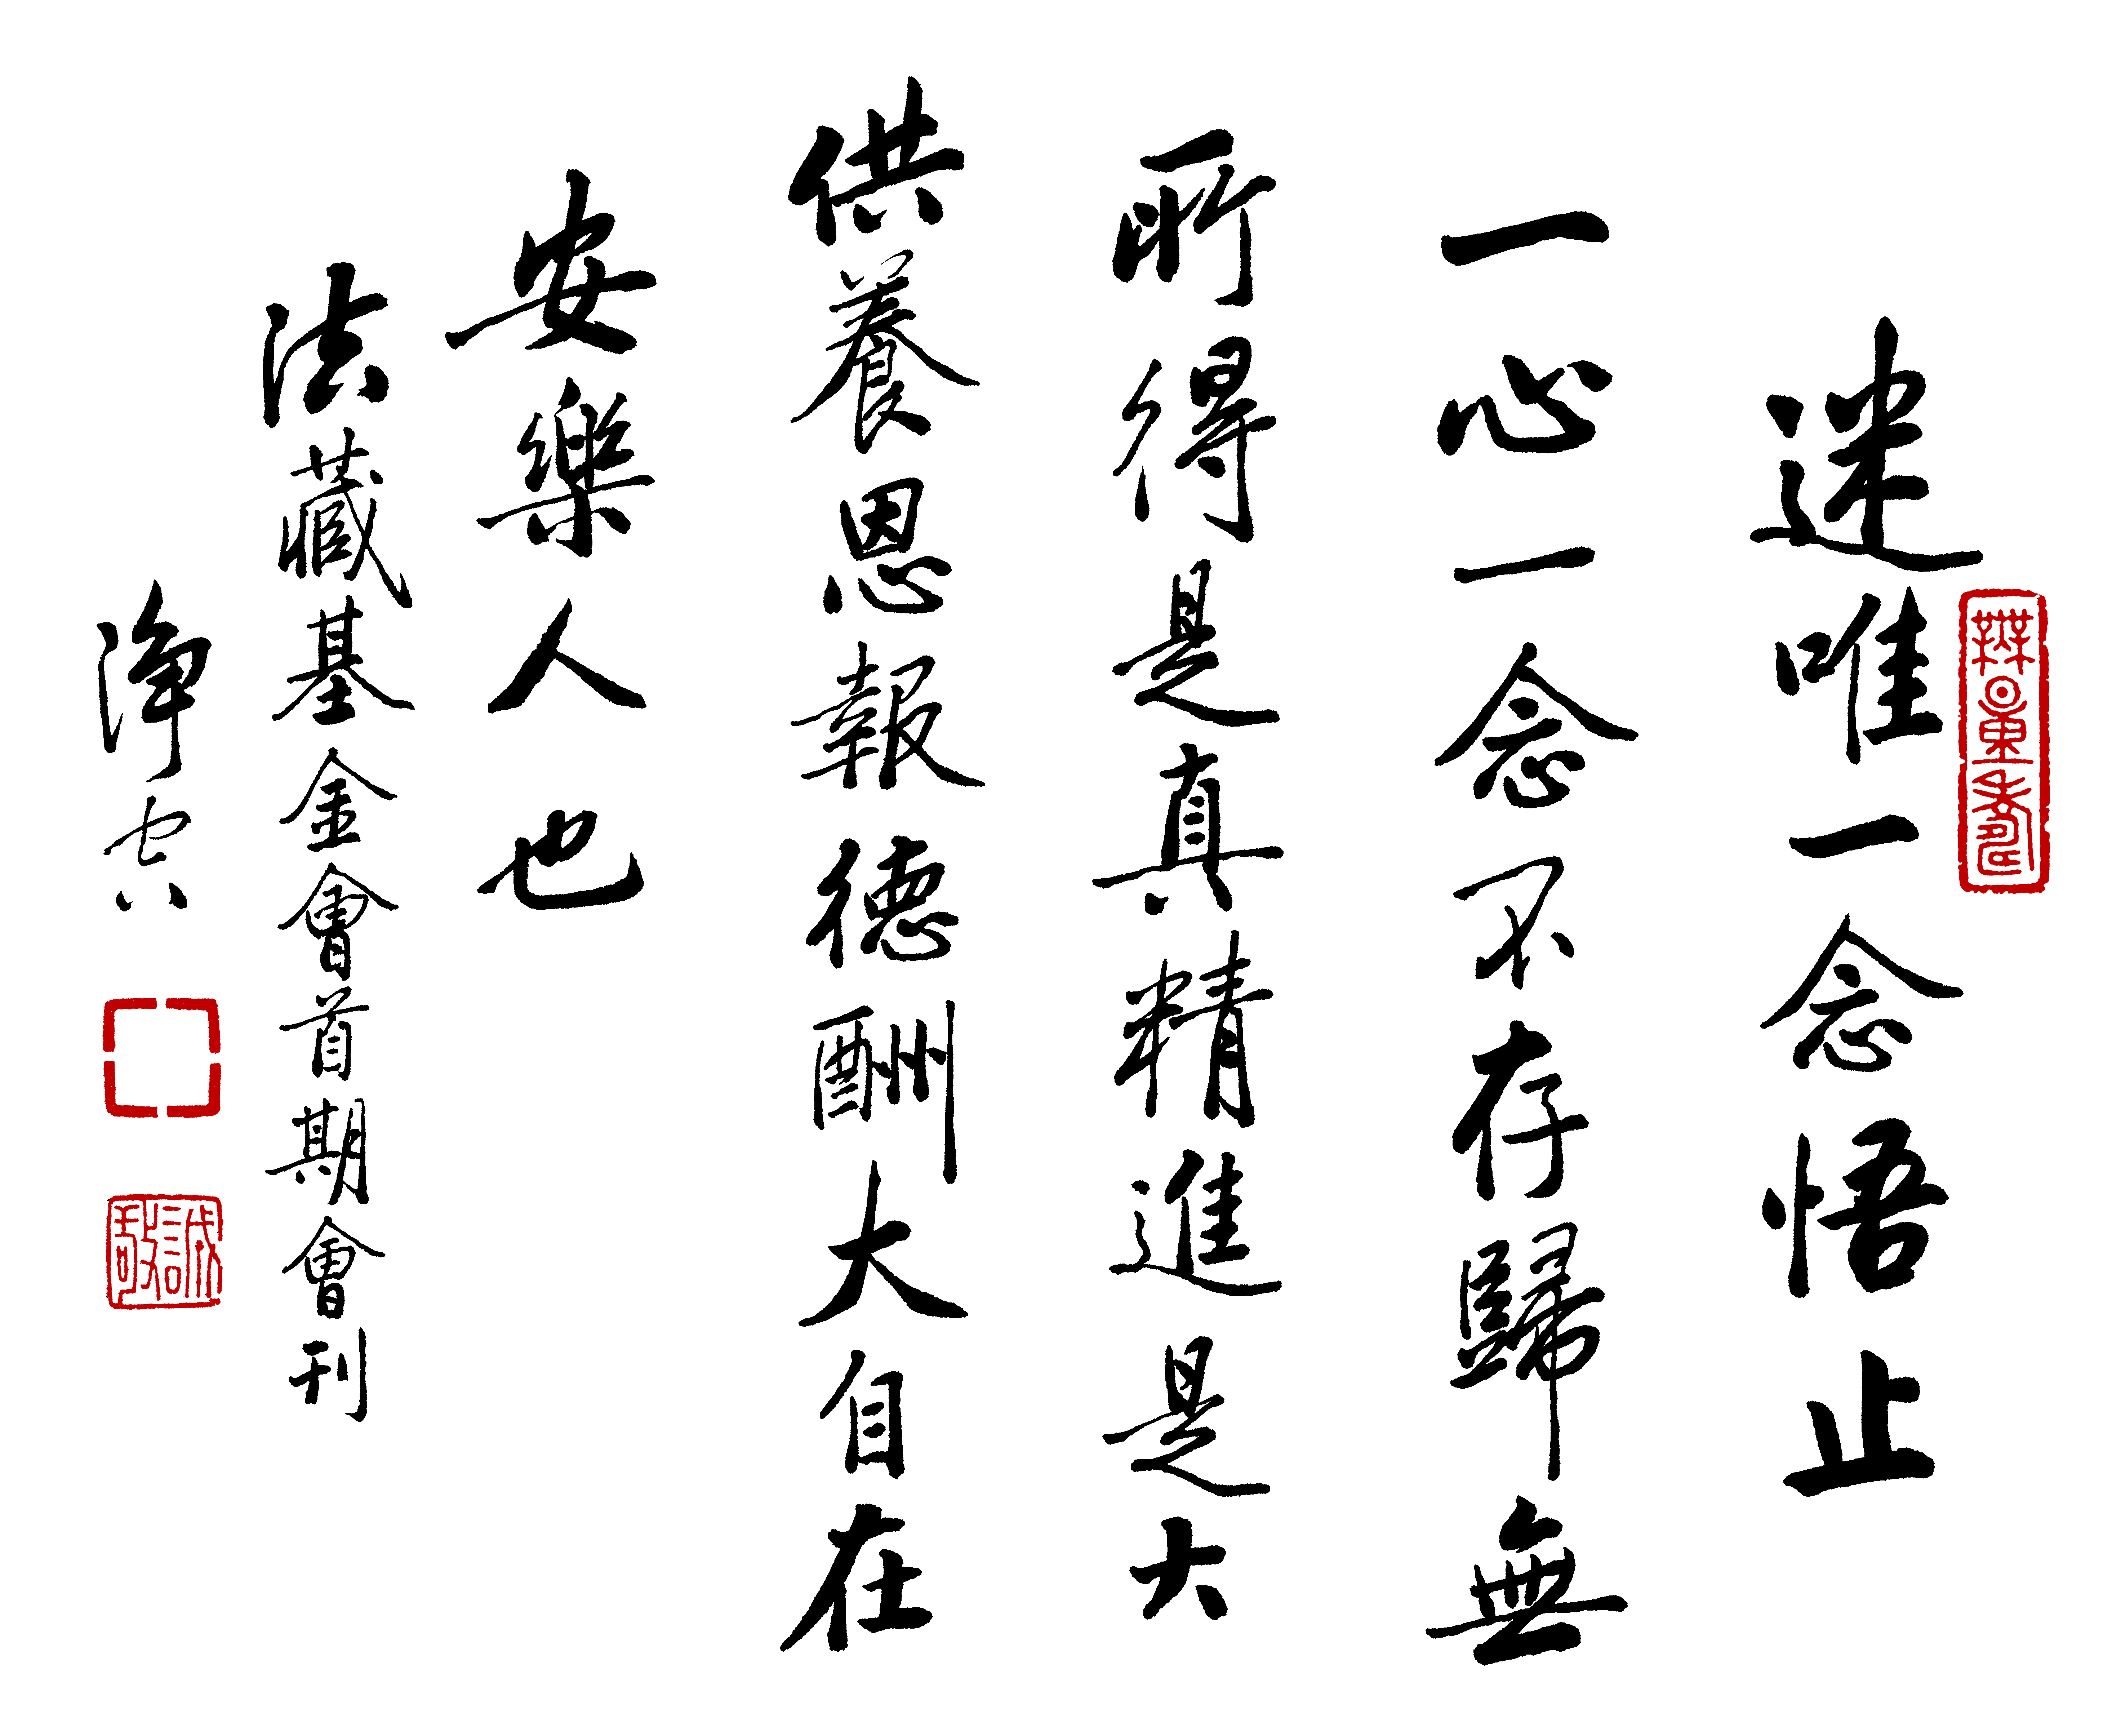 無量壽
迷唯一念悟止
一心一念不存歸無
所得是真精進是大
供養恩報德酬大自在
安樂人也
法藏基金會首期會刊
淨空
誠敬